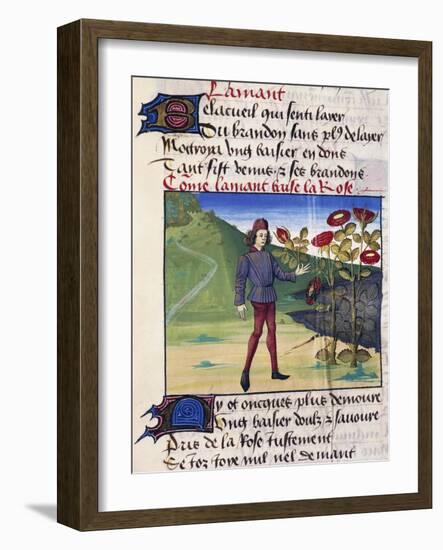 Lamant
Belacueil qui senti layer
Du brandon sans plus delayer
Motroya ung baisier en dons
Tant fist venus & ses brandons
Come lamant baise la Rose
Ny ot oncques plus demoure
Ung baisier doulz & savoure
Pris de la Rose
nul nel demant